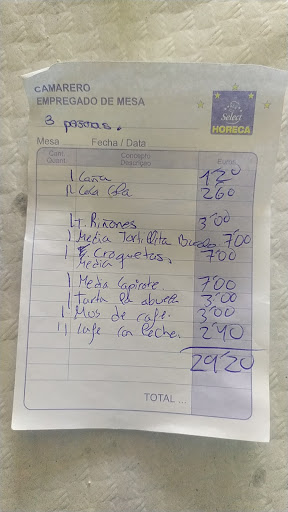 CAMARERO
EMPREGADO DE MESA
Select
HORECA
3 personas.
Mesa ...... Fecha / Data
Cant. Quant. Concepto Descripção Euros
1 Caña 1'20
11 Coca Cola 2'60
1 T. Riñones 3'00
1 Media Tortillita 7'00
1 Croquetas. 7'00
Media
1 Media 7'00
1 tarta la abuela 3'00
1 Mus de café. 3'00
11 Cafe con leche 2'40
29'20
TOTAL ...